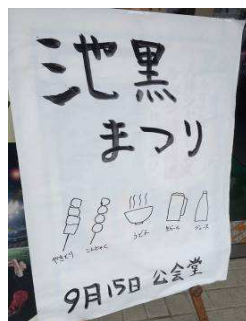 池黒
まつり
やきとり こんにゃく うどん ビール ジュース
9月15日 公会堂